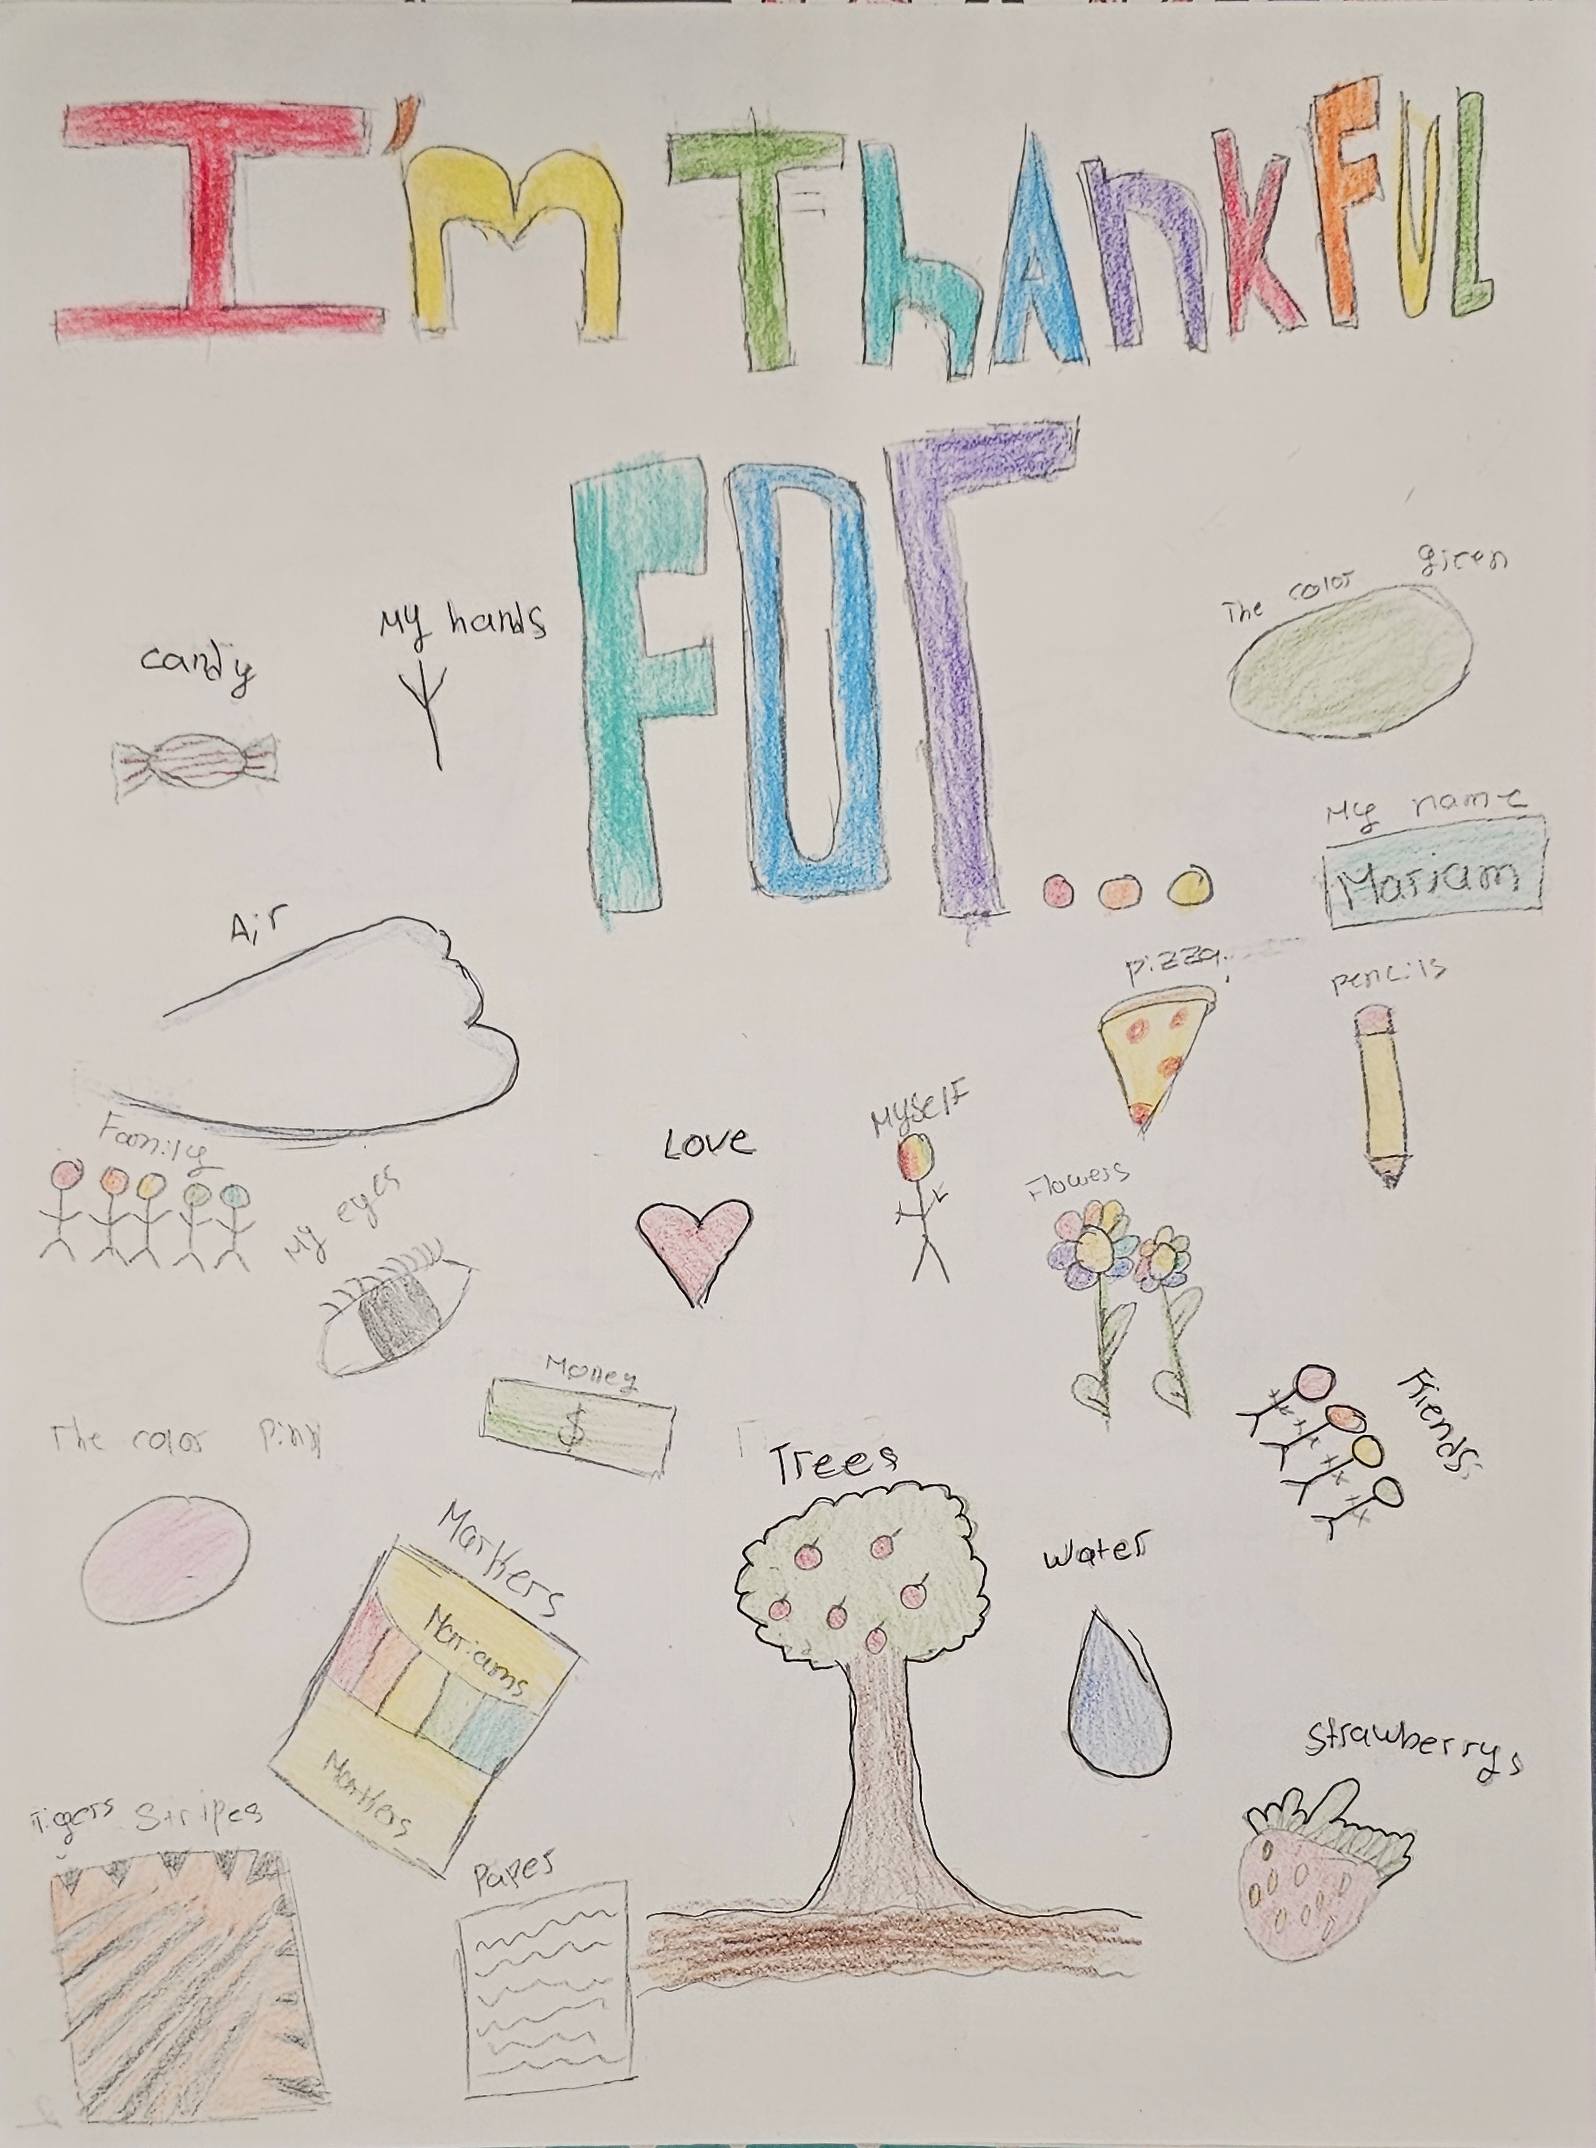 I'm ThAnkFUL
FOr...
The color green
My hands
candy
My name
Mariam
Air
pizza
pencils
Family
Love
MyselF
Flowers
My eyes
Money
$
Friends
The color Pink
Trees
Markers
Mariams
Markers
Water
Strawberrys
Tigers Stripes
Paper